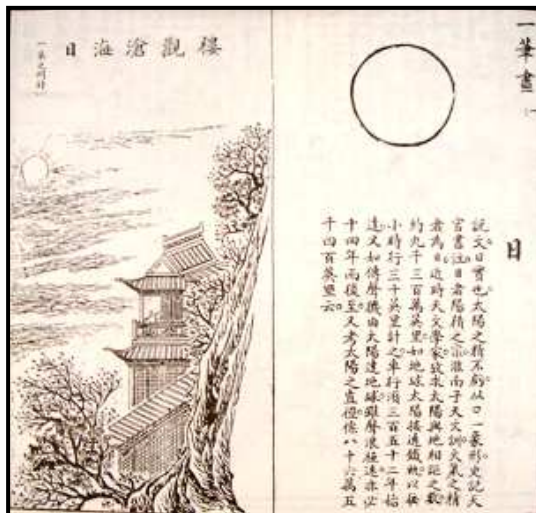 一筆畫
一
日
說文日實也太陽之精不虧从口一象形史記天
官書注日者陽精之宗淮南子天文訓火氣之精
者為日近時天文學家攷求太陽與地相距之數
約九千三百萬英里如地球太陽接通鐵軌以每
小時行三十英里計之車行須三百五十二年始
達又如傳聲機由太陽達地球雖聲浪極速亦必
十四年而後至又考太陽之直徑係八十六萬五
千四百英里云
樓觀滄海日